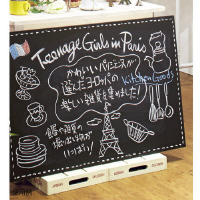 Teenage Girls in Paris
かわいいパリジェンヌが
選んだヨーロッパの
楽しい雑貨を集めました!
Kitchen Goods
食器や雑貨の
いっぱい!